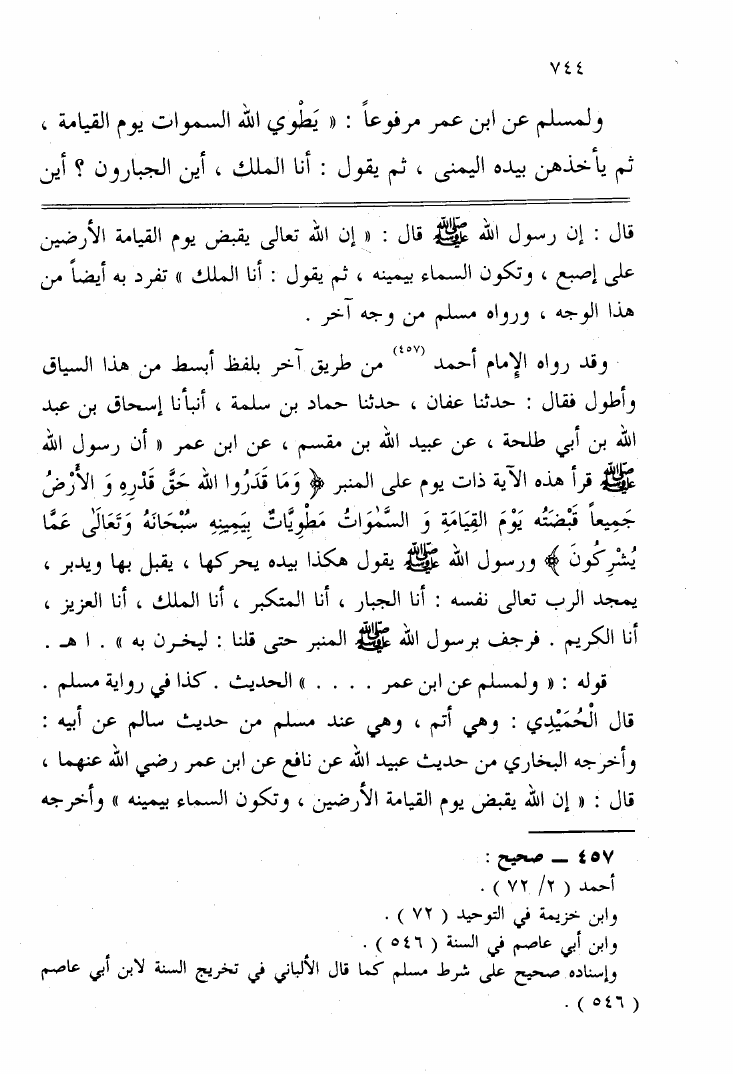 ٧٤٤
ولمسلم عن ابن عمر مرفوعاً : « يَطْوي الله السموات يوم القيامة ،
ثم يأخذهن بيده اليمنى ، ثم يقول : أنا الملك ، أين الجبارون ؟ أين
قال : إن رسول الله ﷺ قال : « إن الله تعالى يقبض يوم القيامة الأرضين
على إصبع ، وتكون السماء بيمينه ، ثم يقول : أنا الملك » تفرد به أيضاً من
هذا الوجه ، ورواه مسلم من وجه آخر .
وقد رواه الإمام أحمد (٤٥٧) من طريق آخر بلفظ أبسط من هذا السياق
وأطول فقال : حدثنا عفان ، حدثنا حماد بن سلمة ، أنبأنا إسحاق بن عبد
الله بن أبي طلحة ، عن عبيد الله بن مقسم ، عن ابن عمر « أن رسول الله
ﷺ قرأ هذه الآية ذات يوم على المنبر ﴿ وَمَا قَدَرُوا الله حَقَّ قَدْرِهِ وَ الأَرْضُ
جَمِيعاً قَبْضَتُه يَوْمَ القِيَامَةِ وَ السَّمٰوَاتُ مَطْوِيَّاتٌ بِيَمِينِهِ سُبْحَانَهُ وَتَعَالَىٰ عَمَّا
يُشْرِكُونَ ﴾ ورسول الله ﷺ يقول هكذا بيده يحركها ، يقبل بها ويدبر ،
يمجد الرب تعالى نفسه : أنا الجبار ، أنا المتكبر ، أنا الملك ، أنا العزيز ،
أنا الكريم . فرجف برسول الله ﷺ المنبر حتى قلنا : ليخرن به » . ا هـ .
قوله : « ولمسلم عن ابن عمر . . . . » الحديث . كذا في رواية مسلم .
قال الْحُمَيْدِي : وهي أتم ، وهي عند مسلم من حديث سالم عن أبيه :
وأخرجه البخاري من حديث عبيد الله عن نافع عن ابن عمر رضي الله عنهما ،
قال : « إن الله يقبض يوم القيامة الأرضين ، وتكون السماء بيمينه » وأخرجه
٤٥٧ ــ صحيح :
أحمد ( ٢/ ٧٢ ) .
وابن خزيمة في التوحيد ( ٧٢ ) .
وابن أبي عاصم في السنة ( ٥٤٦ ) .
وإسناده صحيح على شرط مسلم كما قال الألباني في تخريج السنة لابن أبي عاصم
( ٥٤٦ ) .